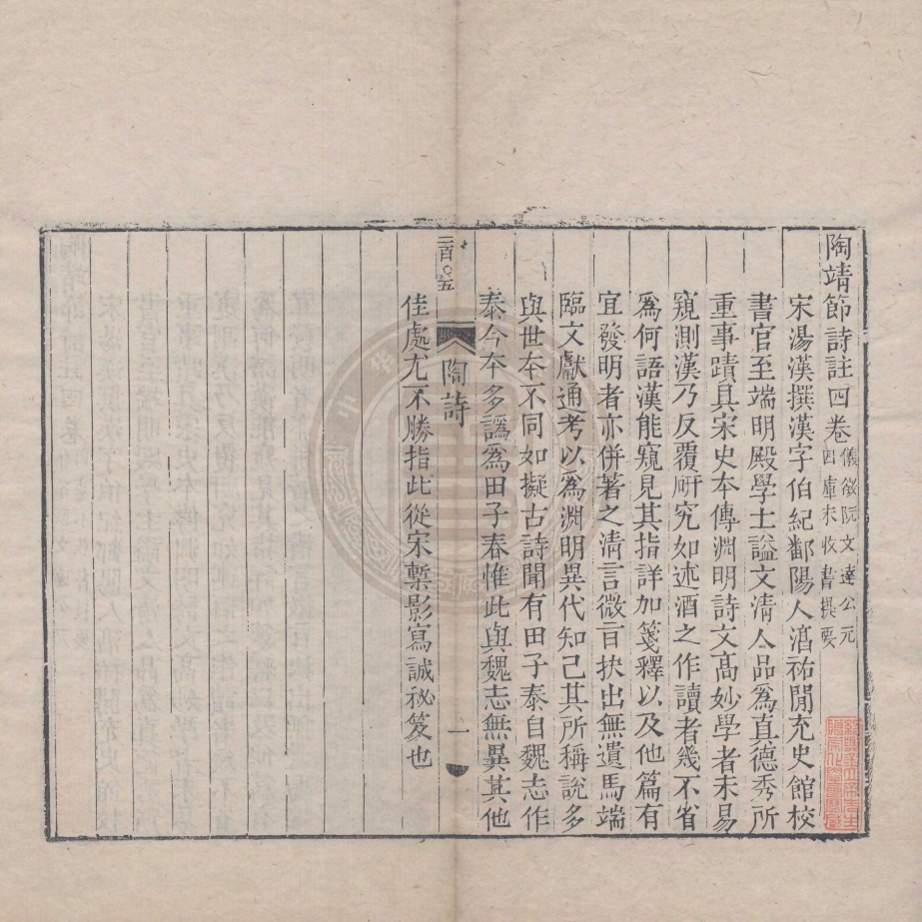 陶靖節詩註四卷儀徵阮文達公元
四庫未收書撰要
宋湯漢撰漢字伯紀鄱陽人湻祐閒充史館校
書官至端明殿學士謚文清人品爲直德秀所
重事蹟具宋史本傳淵明詩文高妙學者未易
窺測漢乃反覆研究如述酒之作讀者幾不省
爲何語漢能窺見其指詳加箋釋以及他篇有
宜發明者亦併著之清言微旨抉出無遺馬端
臨文獻通考以爲淵明異代知己其所稱說多
與世本不同如擬古詩聞有田子泰自魏志作
泰今本多譌爲田子春惟此與魏志無異其他
陶詩
一
二百〇五
佳處尤不勝指此從宋槧影寫誠祕笈也